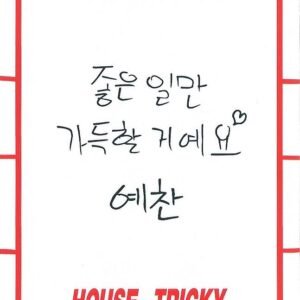 좋은 일만
가득할 거예요♡
예찬
HOUSE TRICKY